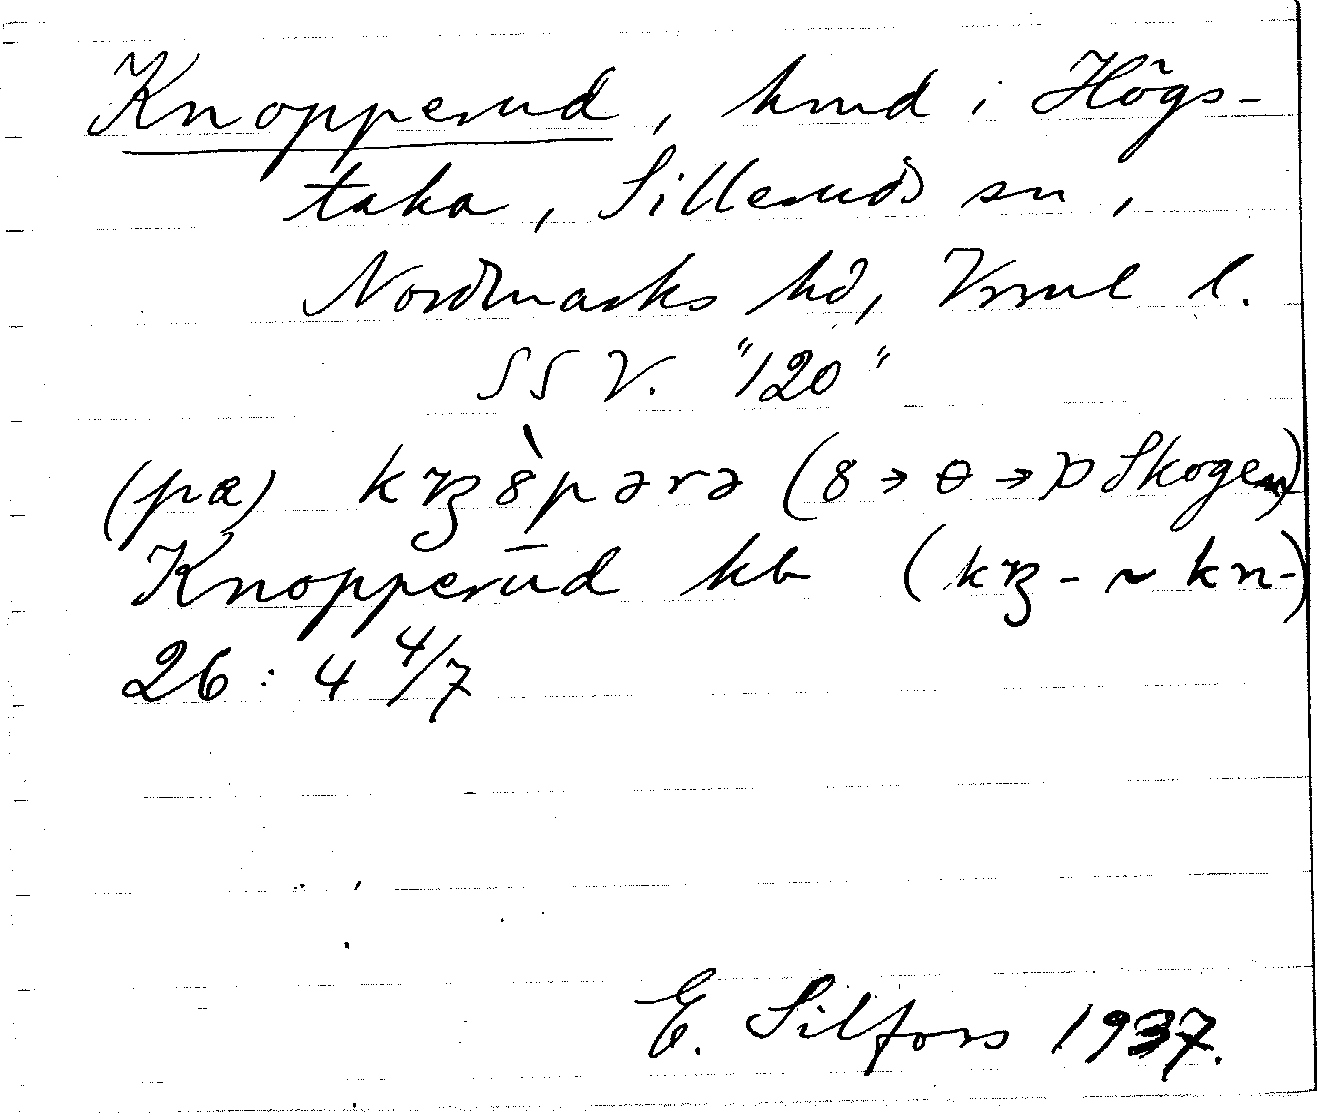 Knopperud, hmd i Högs-
taka, Silleruds sn,
Nordmarks hd, Vrml l.
SSV. "120"
(pæ) kɲ8̀pərə (8 → ɵ → p Skogen)
Knopperūd kb (kɲ- ~ kn-)
26:4 4/7
E. Silfors 1937.